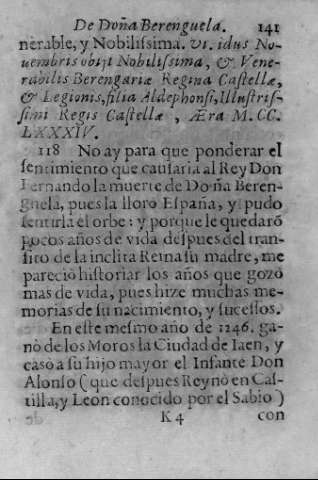 De Doña Berenguela. 141
nerable, y Nobilissima. VI. idus No-
uembris obijt Nobilissima, & Vene-
rabilis Berengariæ Regina Castellæ,
& Legionis, filia Aldephonsi, Illustris-
simi Regis Castellæ, Æra M. CC.
LXXXIV.
118 No ay para que ponderar el
sentimiento que causaria al Rey Don
Fernando la muerte de Doña Beren-
guela, pues la lloró España, y pudo
sentirla el orbe: y porque le quedarõ
pocos años de vida despues del tran-
sito de la inclita Reina su madre, me
pareciò historiar los años que gozò
mas de vida, pues hize muchas me-
morias de su nacimiento, y sucessos.
En este mesmo año de 1246. ga-
nò de los Moros la Ciudad de Iaen, y
casò a su hijo mayor el Infante Don
Alonso (que despues Reynò en Cas-
tilla, y Leon conocido por el Sabio)
K 4 con